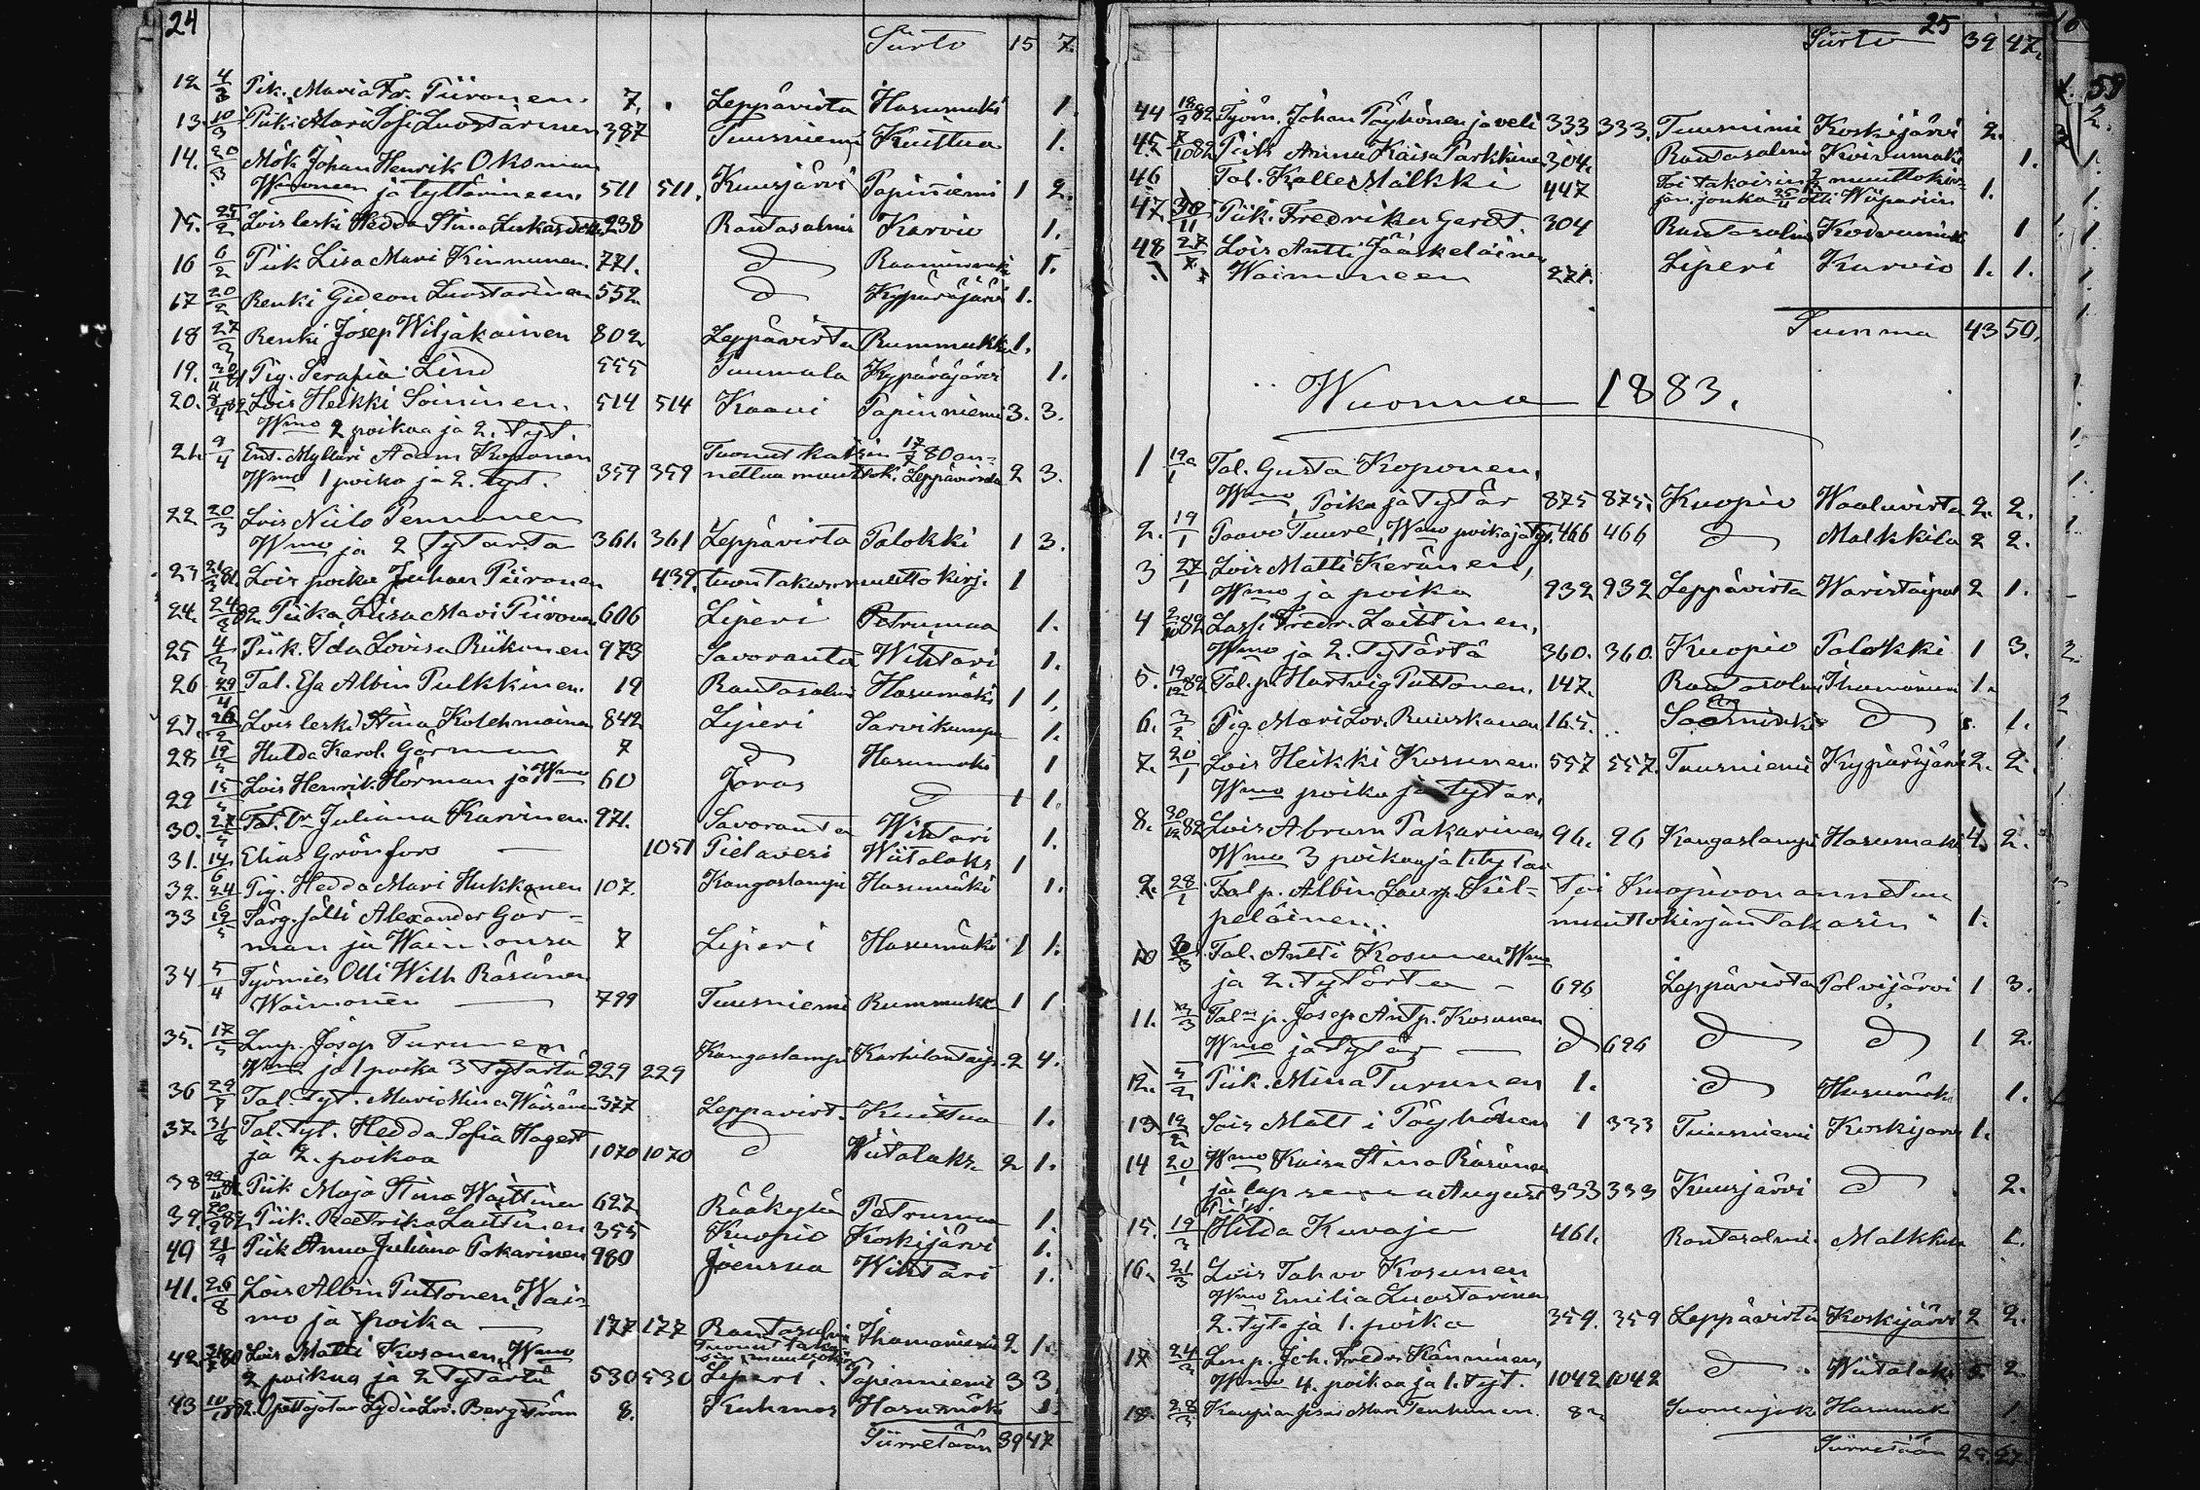 24
Siirto 15 7.
12 4/3 Pik. Maria Fr. Tiironen. 7. Leppävirta Hasumäki 1.
13. 10/3 Piika Mari Sofi Luostarinen 387 Tuusniemi Kuittua 1.
14. 20/3 Mök Johan Henrik Oksman
Waimoneen ja tyttärineen. 511 511. Kuusjärvi Papinniemi 1 2.
15. 25/2 Lois leski Hedda Stina 238 Rantasalmi Karvio 1.
16 6/2 Piik Lisa Mari Kinnunen. 771. D 1.
17 20/2 Renki Gideon Luostarinen 552. D Kypäräjärvi 1.
18 27/3 Renki Josep Wiljakainen 802 Leppävirta Rummukka 1.
19. 30/11 81 Pig. Serafia Lind 555 Kypäräjärvi 1.
20. 8/4 82 Lois Heikki Soininen. 514 514 Kaavi Papinniemi 3. 3.
Wmo 2 poikaa ja 2. tyt.
21. 9/4 Ent. Mylläri Adam Koponen Tuonut takasin 17/7 80 an-
Wmo 1 poika ja 2. tyt. 359 359 nettua muuttok. Leppävirrda 2 3.
22 20/3 Lois Niilo Pennanen
Wmo ja 2 Tytärtä 361. 361 Leppävirta Palokki 1 3.
23 Lois poika Juhan Piironen 439. tuon takasin muuttokirj. 1
24. Piika Liisa Mari Piironen 606 Liperi Petrumaa 1.
25 4/3 Piik. Ida Lovisa Riikonen 973 Savoranta Wihtari 1.
26 29/4 Tal. Esa Albin Pulkkinen. 19 Rantasalmi Hasumäki 1 1.
27. 26/2 Lois leski Stina Kolehmainen 842 Liperi Sarvikumpu 1.
28 19/5 Hulda Karol. Görman 7 D Hasumäki 1
29 15/5 Lois Henrik. Hörman ja Wmo 60 Joros D 1 1.
30. 27/5 Tal. Tr Juliana Karvinen. 971. Savoranta Wihtari 1.
31. 14/6 Elias Grönfors 1051 Pielavesi Wiitalaks 1
32. 24/6 Pig. Hedda Mari Hukkanen 107. Kangaslampi Hasumäki 1.
33 19/5 Alexander Gör-
man ja Waimonsa 7 Liperi Hasumäki 1 1.
34 5/4 Työmies Olli Wilh Räsänen
Waimonen 799 Tuusniemi Rummukk 1 1
35. 17/5 Lmp. Josep Turunen
Wmo ja 1 poika 3 Tytärtä 229 229 Kangaslampi 2 4.
36 29/7 Tal. Tyt. Mari Mina Wäisänen 377 Leppävirt. Kuittua 1.
37. 31/8 Tal. Tyt. Hedda Sofia Hagert
ja 2. poikaa 1070 1070 D Wiitalaks. 2 1.
38 Piik Maja Stina Waittinen 627. Rääkylä Petrumaa 1.
39. Piik. Reetrika Laitinen 355 Kuopio Koskijärvi 1.
40 21/9 Piik Anna Juliana Pakarinen 980 Joensuu Wihtari 1.
41. 26/8 Lois Albin Puttonen, Wai-
mo ja poika 177 177 Rantasalmi Ihamaniemi 2 1.
42. Lois Matti Kosonen, Wmo
2 poikaa ja 2 Tytärtä 530 530 Liperi. Papinniemi 3 3
43 Opettajatar Lydia Lov. Bergström 8. Kuhmo Hasumäki 1.
Siirretään 39 47
25
Siirto 39 47.
44 Työm. Johan Pöyhönen ja veli 333 333. Tuusniemi Koskijärvi 2.
45. 7/10 82 Piik Anna Kaisa Parkkinen 304. Rantasalmi Koivumäki 1.
46 Tal. Kalle Mälkki 447 Toi takaisin muuttokir-
jan. jonka otti Wiipuriin 1.
47. 30/11 Piik. Fredrika Gerdt. 304 Rantasalmi Koivumäki 1
48 27/7 Lois Antti Jääskeläinen
Waimoneen 271. Liperi Karvio 1. 1.
Summa 43 50.
Wuonna 1883.
1 19/1 Tal. Gusta Koponen,
Wmo, Poika ja Tytär 875 875. Kuopio Waaluvirta 2. 2.
2. 19/1 Paavo Tuure, Wmo poika ja Tyt. 466 466 D Malkkila 2 2.
3 27/1 Lois Matti Keränen,
Wmo ja poika 932 932 Leppävirta 2 1.
4 2/10 82 Lassi Fredr. Laittinen,
Wmo ja 2. Tytärtä 360. 360. Kuopio Palokki 1 3.
5. 19/12 82 Tal. p. Hartvig Puttonen. 147. Rantasalmi Ihamaniemi 1.
6. 3/2 Pig. Mari Lov. Ruuskanen 165. D 1.
7. 20/1 Lois Heikki Kosunen 557 557. Tuusniemi Kypäräjärvi 2. 2.
Wmo poika ja tytär.
8. 30/12 82 Lois Abram Pakarinen 96. 96 Kangaslampi Hasumäki 4. 2.
Wmo 3 poikaa ja 1 tytär
9. 28/1 Tal p. Albin Laurp. Kiil- Toi Kuopioon annetun
peläinen. muuttokirjan takasin 1.
10 Tal. Antti Kosunen Wmo
ja 2. tytärtä 696 Leppävirta Polvijärvi 1 3.
11. Talon p. Josep Antp. Kosunen
Wmo ja tytär D 696 D D 1 2.
12. Piik. Mina Turunen 1. D Hasumäki 1.
13 19/2 Lois Matti Pöyhönen 1 333 Tuusniemi Koskijärvi 1.
14 20/1 Wmo Kaisa Stina Räsänen
ja lapsensa August 333 333 Kuusjärvi D 2.
15. 19/3 Hilda Kuvaja 461. Rantasalmi Malkkila 1.
16. 21/3 Lois Tahvo Kosunen
Wmo Emilia Luostarinen
2. tyt. ja 1. poika 359. 359 Leppävirta Koskijärvi 2 2.
17 24/3 Lmp. Joh. Fredr. Hänninen,
Wmo 4. poikaa ja 1. tyt. 1042 1042 D Wiitalaks 5. 2.
18. 28/3 Mari Tenhunen. Suonenjoki Hasumäki 1
Siirretään